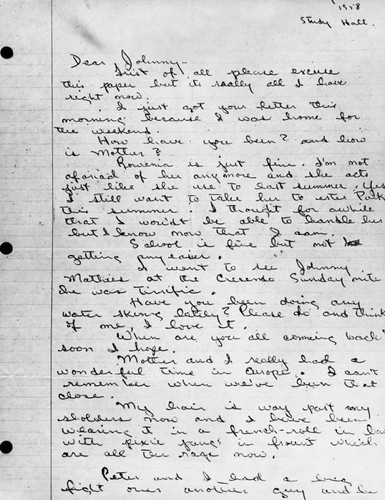 1958
Study Hall.
Dear Johnny-
First of all please excuse
this paper but its really all I have
right now.
I just got your letter this
morning because I was home for
the weekend.
How have you been? and how
is Mother?
Rowenia is just fine. I'm not
afaraid of her anymore and she acts
just like she use to last summer. Yes
I still want to take her to estes Park
this summer. I thought for awhile
that I would't be able to handle her
but I know now that I cam.
School is fine but not
getting any easier.
I went to see Johnny
Mathies at the Cresendo Sunday nite
he was tirrific.
Have you been doing any
water skiing lately? Please do and think
of me I love it.
When are you all coming back?
soon I hope.
Mother and I really had a
wonderful time in europe. I can't
remember when we've been that
close.
My hair is way past my
sholders now and I have been
wearing it in a french-roll in back
with pixie bangs in frount which
are all the rage now.
Peter and I had a big
fight over another guy and he